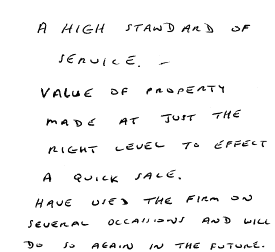 A HIGH STANDARD OF
SERVICE. -
VALUE OF PROPERTY
MADE AT JUST THE
RIGHT LEVEL TO EFFECT
A QUICK SALE.
HAVE USED THE FIRM ON
SEVERAL OCCASSIONS AND WILL
DO SO AGAIN IN THE FUTURE.